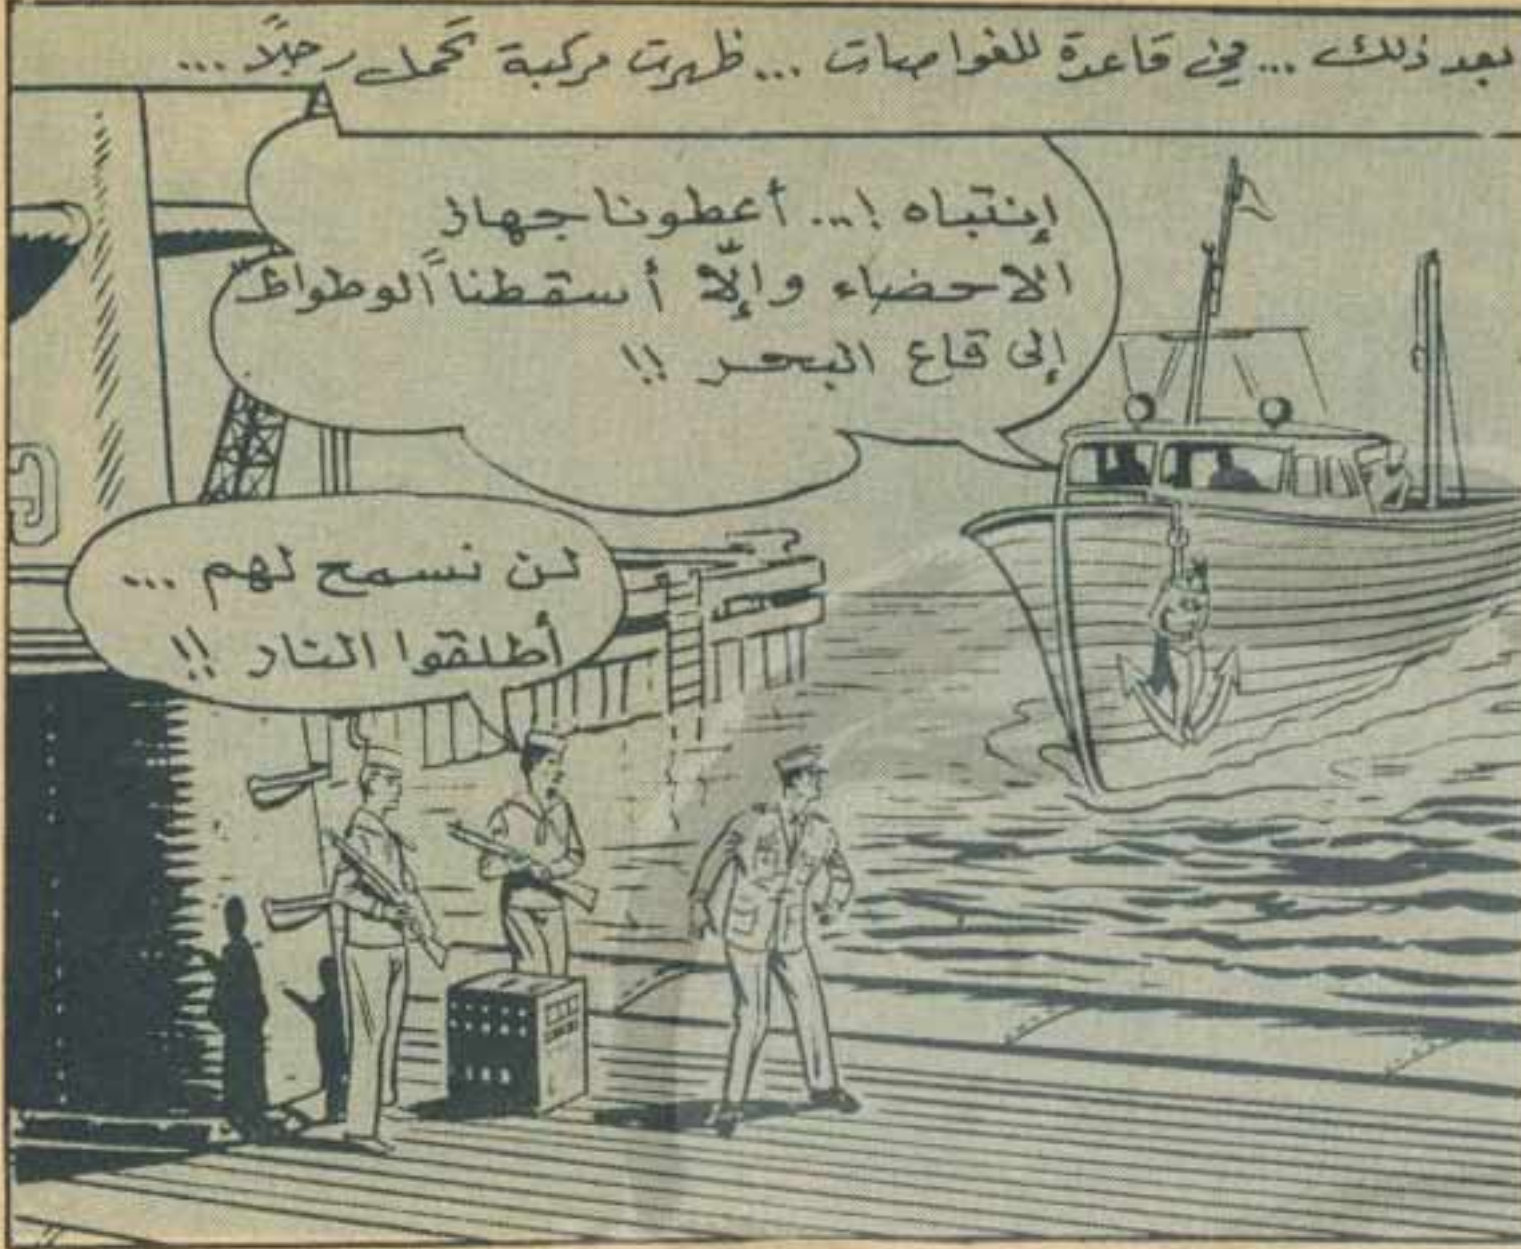 بعد ذلك ... في قاعدة للغواصات ... ظهرت مركبة تحمل رجلاً ...
إنتباه !... أعطونا جهاز
الاحضاء وإلّا أسقطنا الوطواط
إلى قاع البحر !!
لن نسمح لهم ...
أطلقوا النار !!